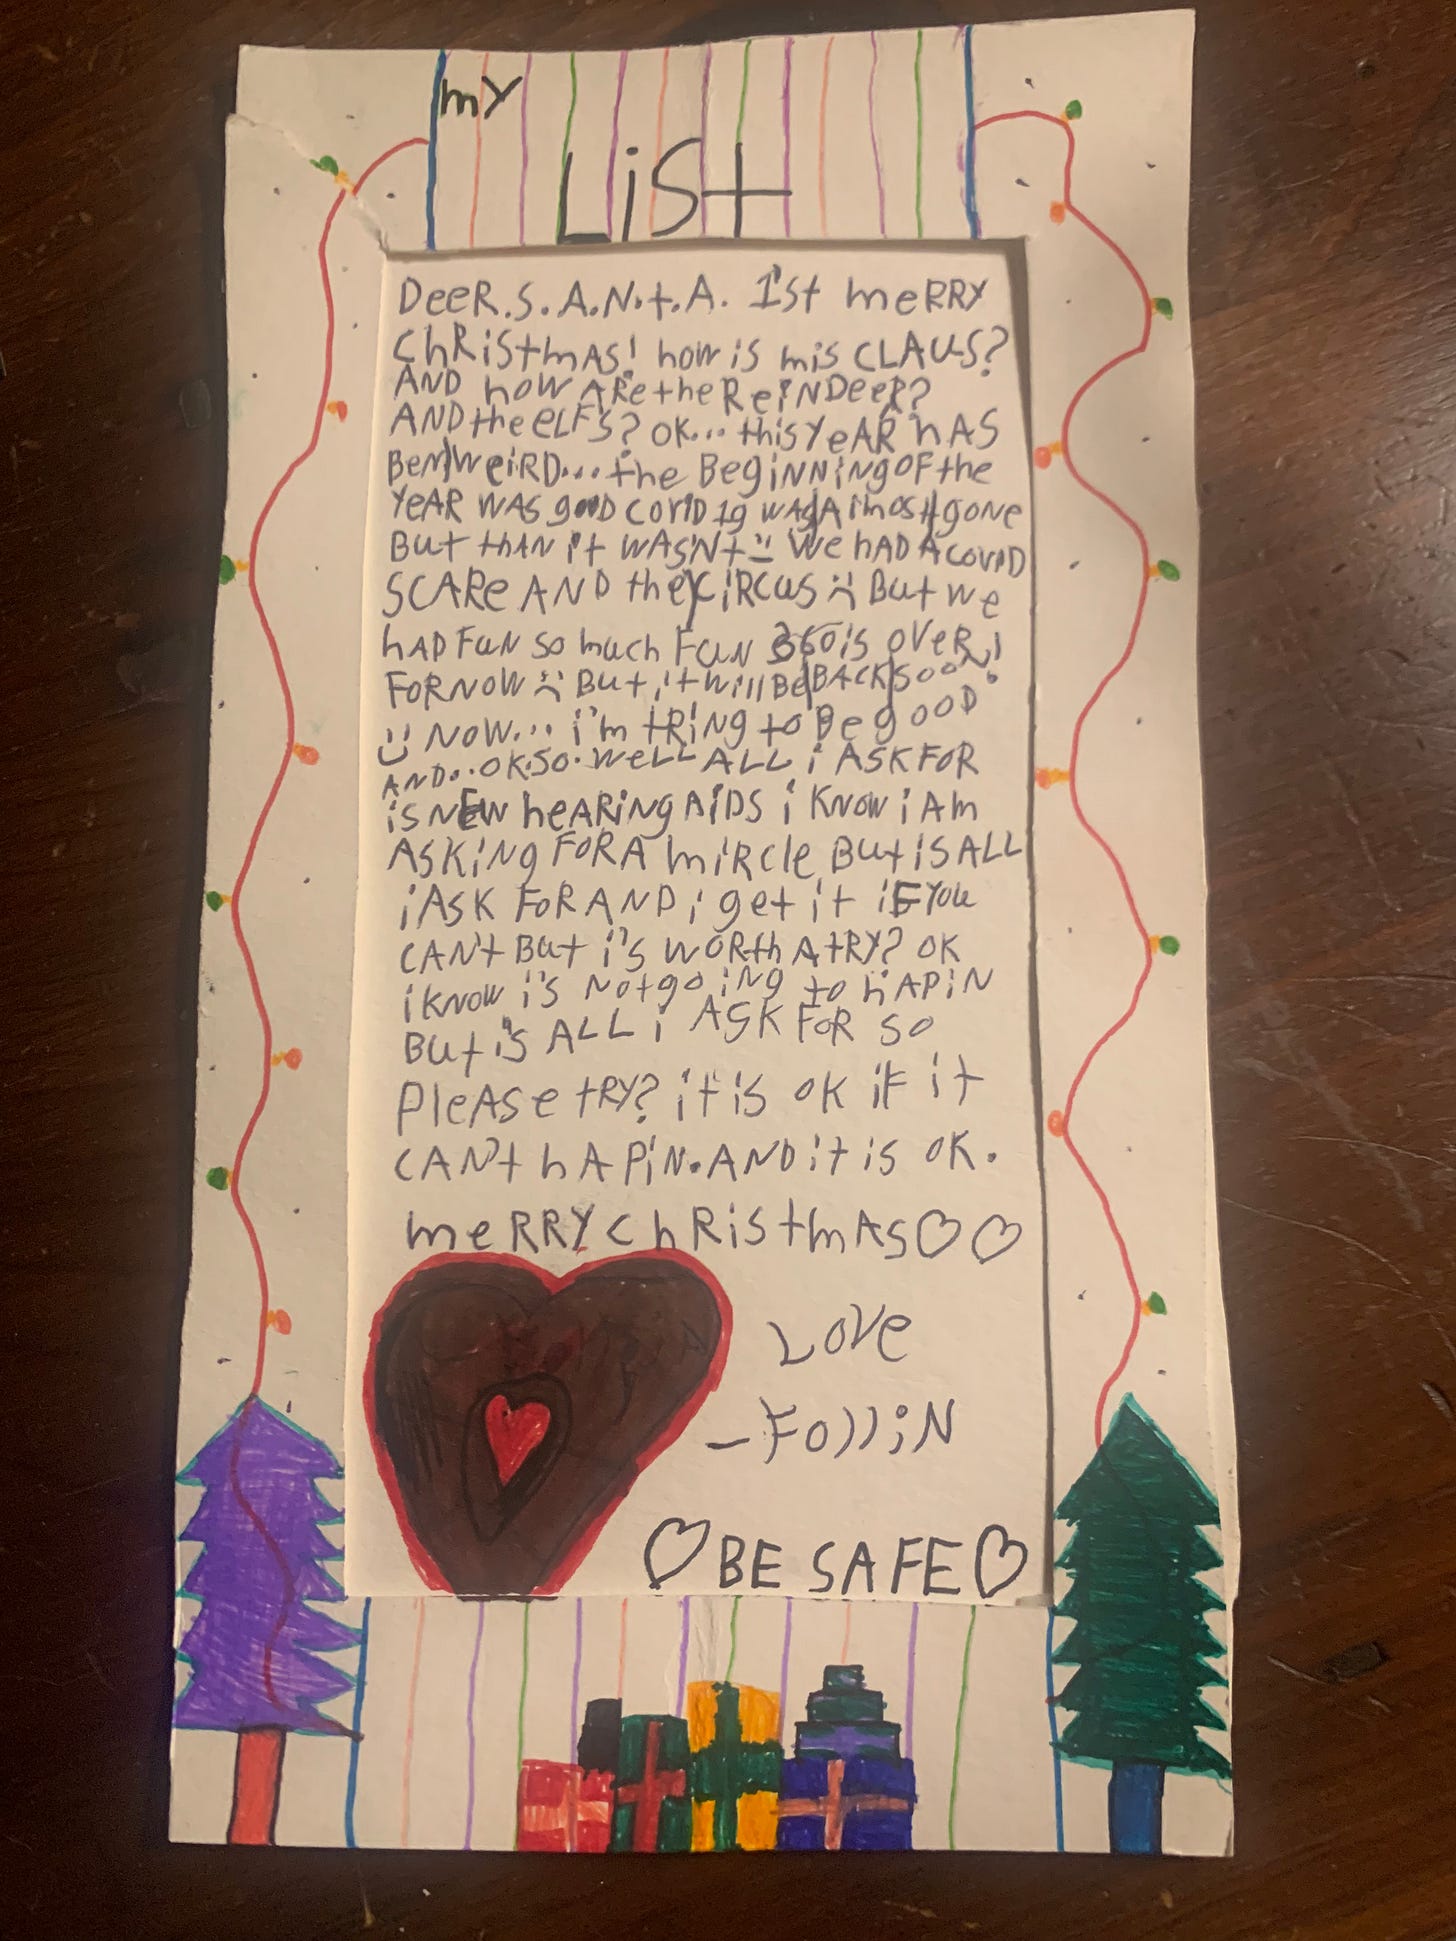 my
List
DeeR.S.A.N.t.A. 1st meRRY
ChRistmAS! how is mis CLAUS?
AND how ARe the ReiNDeeR?
AND the eLF'S? OK... this YeAR hAS
BeN WeiRD... the BegiNNiNg OF the
YeAR WAS gooD Covid 19 WAS Almost goNe
But thAN it WASN't We hAD A COViD
SCARe AND the CiRCus But We
hAD FuN so much FuN 360 is oveR!
FOR NOW But it will Be BACK sooN!
NOW... i'm tRiNg to Be gooD
AND.. OK.SO. WeLL ALL i ASK FOR
is NEW heARiNg AiDS i KNOW i Am
ASKiNg FOR A miRcle But iS ALL
i ASK FoR AND i get it iF You
CAN't But i'S WORth A tRY? OK
i KNOW i'S Not goiNg to hAPiN
But i'S ALL i ASK FoR SO
PleASe tRY? it is OK iF it
CAN't hAPiN. AND it is OK.
meRRY ChRistmAS
Love
-FolliN
BE SAFE